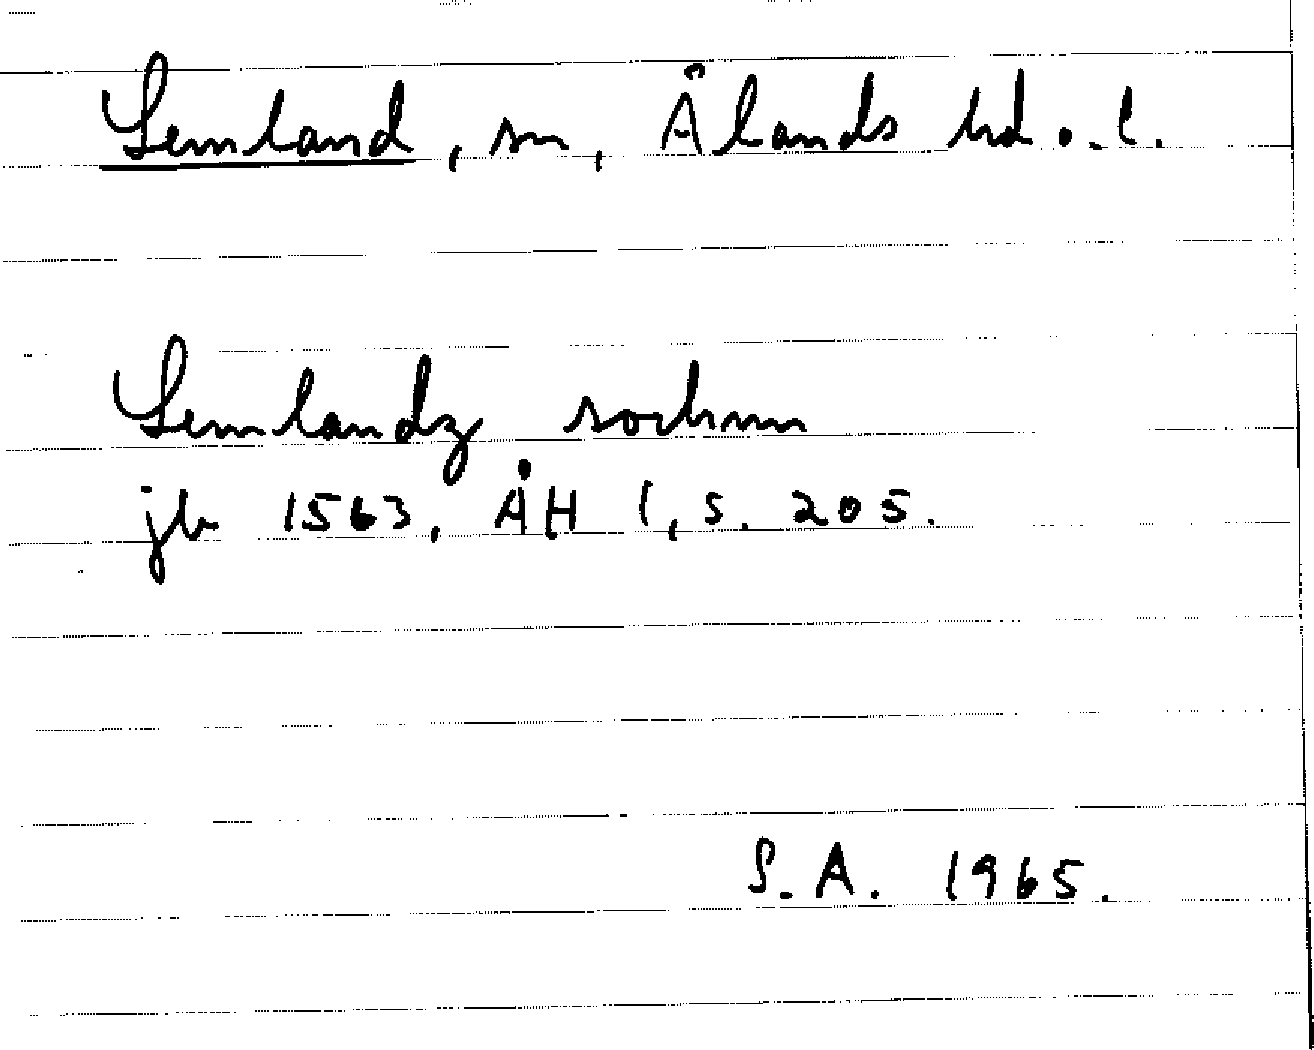 Lemland, sn, Ålands hd o. l.
Lemlandz sochnn
jb 1563, ÅH 1, s. 205.
S. A. 1965.